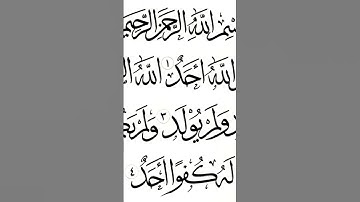 بِسْمِ اللَّهِ الرَّحْمَنِ الرَّحِيمِ
اللَّهُ أَحَدٌ ١ اللَّهُ
وَلَمْ يُولَدْ ٣ وَلَمْ
لَهُ كُفُوًا أَحَدٌ ٤